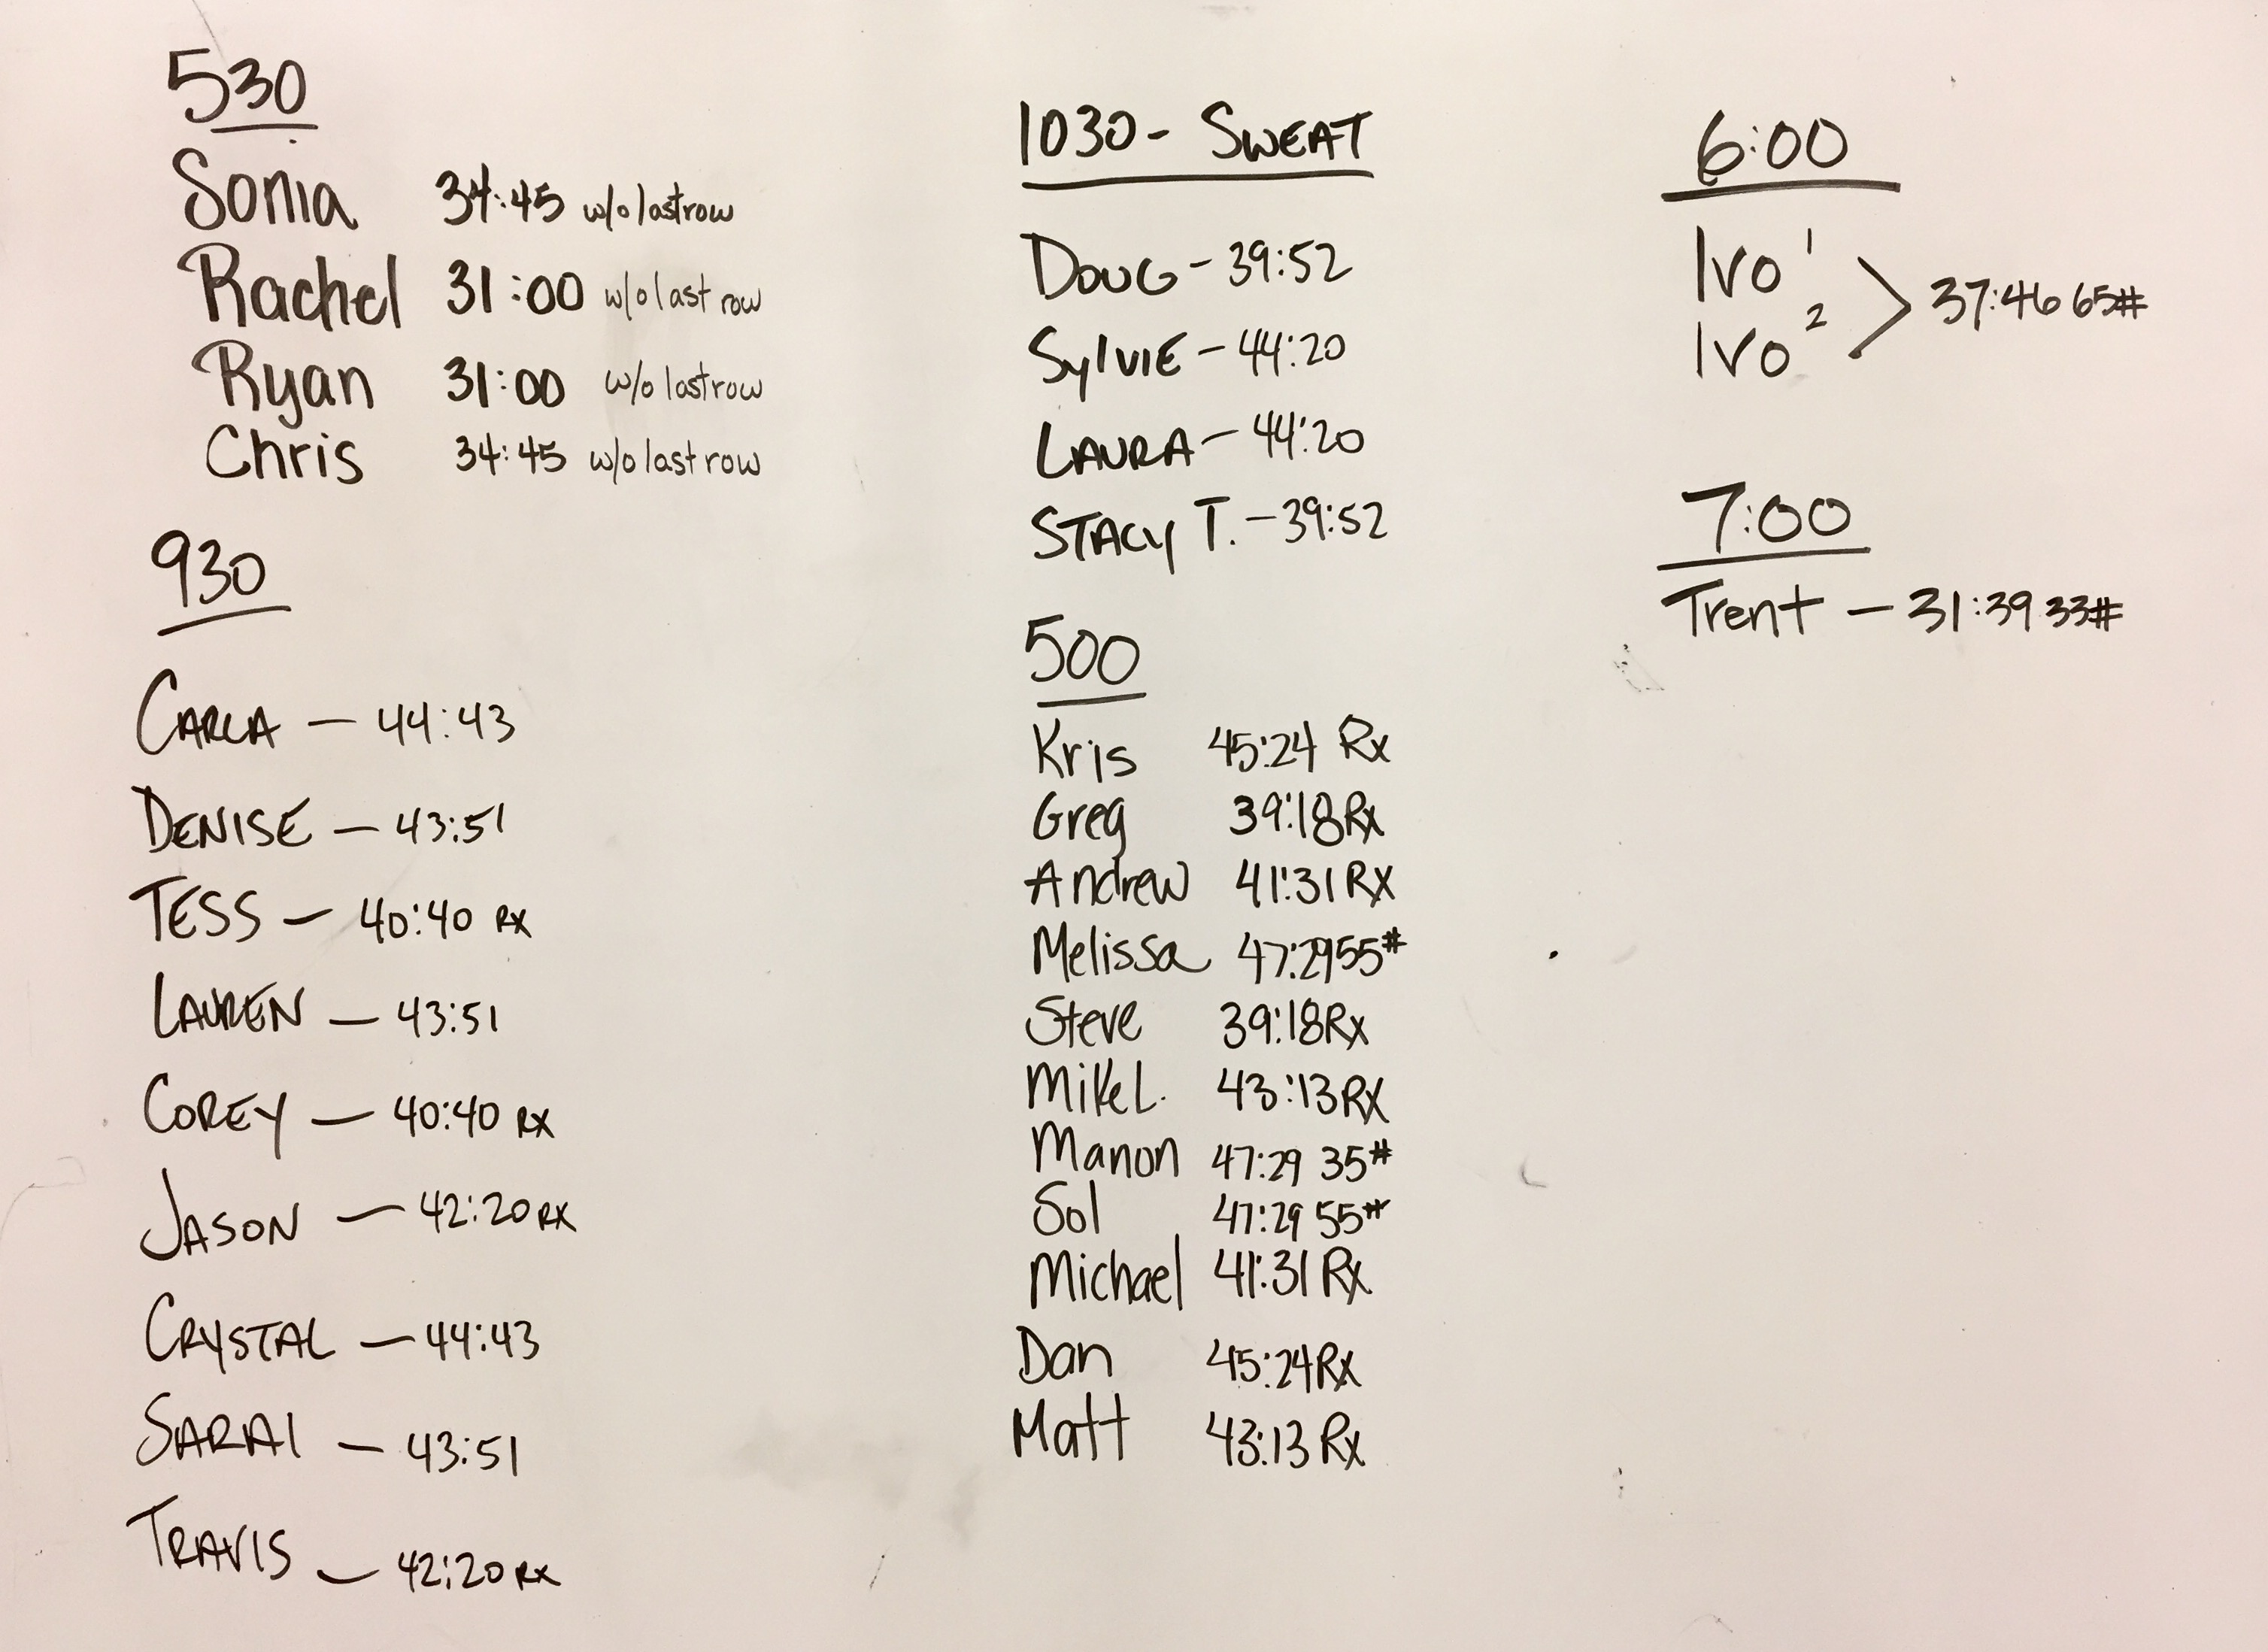 530
Sonia 34:45 w/o last row
Rachel 31:00 w/o last row
Ryan 31:00 w/o last row
Chris 34:45 w/o last row
930
CARLA — 44:43
DENISE — 43:51
TESS — 40:40 RX
LAUREN — 43:51
COREY — 40:40 RX
JASON — 42:20 RX
CRYSTAL — 44:43
SARAI — 43:51
TRAVIS — 42:20 RX
1030 - SWEAT
DOUG - 39:52
SylVIE - 44:20
LAURA - 44:20
STACY T. - 39:52
500
Kris 45:24 Rx
Greg 39:18 Rx
Andrew 41:31 RX
Melissa 47:29 55#
Steve 39:18 Rx
Mike L. 43:13 RX
Manon 47:29 35#
Sol 47:29 55#
Michael 41:31 Rx
Dan 45:24 Rx
Matt 43:13 Rx
6:00
Ivo 1
Ivo 2 > 37:46 65#
7:00
Trent — 31:39 33#